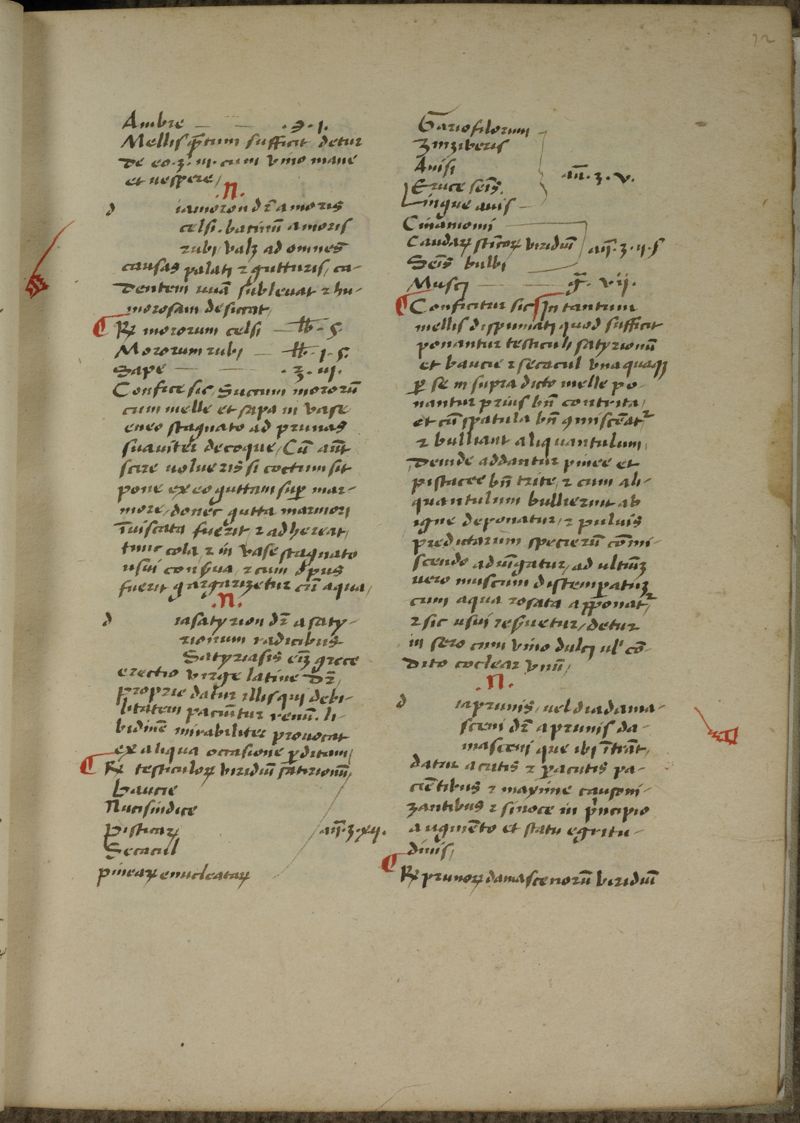 12
Ambre — — .℈.j.
Mellis q̄tum sufficit detur
de eo .ʒ.iij. cum vino mane
et uespere/
.N.
d iamoron dr̄ a moris
celsi . batinū a moris
rubi/ valꝫ ad omnes
causas palati ⁊ gutturis/ ca-
dentem uuā subleuat ⁊ hu-
morosam desiccat/
R/ mororum celsi — lb . s.
Mororum rubi — lb .j.s.
Sape — — .ʒ.vj.
Confice sic Succum mororū
cum melle et sapa in vase
eneo stagnato ad prunas
suauiter decoque/ Cū aūt
scire uolueris si coctum sit
pone ex eo guttam sup̄ mar-
more/ donec gutta marmori
īuiscata fuerit ⁊ adhereat/
tunc cola ⁊ in vase stagnato
usui conserua/ ⁊ cum opus
fuerit gargarizetur cū aqua/
.N.
d iasatyrion dr̄ a saty-
rionum radicibus
Satyriasis eīꝫ grece
erectio virge latine dr̄/
proprie datur illis qui debi-
litatem paciuntur renū . li-
bidinē mirabiliter prouocat
ex aliqua occasione ꝑditam/
R/ testiculoꝝ viridiū satirionū/
baucie
Nucis indice
pisticaꝝ
Secacul
pineaꝝ enucleataꝝ
añ.ʒ.xij.
Gariofilorum
zinziberis
Anisi
Eruce seīs
Lingue auis
añ.ʒ.v.
Cinamomi
Caudaꝝ stincoꝝ viridiū
Seīs bulbi
añ.ʒ.ij.s
Musci — — g̃. vij.
Conficitur sic/ In tantum
mellis dispumati quod sufficit
ponantur testiculi satyrionū
et baucie ⁊ secacul vnaquaqꝫ
ꝑ se in supradicto melle po-
nantur prius bn̄ contrita/
et cū spatula bn̄ ꝯmisceātʳ
⁊ bulliant aliquantulum/
deinde addantur pinee et
pistacee bn̄ trite/ ⁊ cum ali-
quantulum bullierint ab
igne deponatur/ ⁊ puluis
predictarum specierū cōmi-
scendo adiūgatur/ ad ultimū
uero muscum distemperatum
cum aqua rosata apponatʳ
⁊ sic usui res̄uetur/ detur
in sero cum vino dulci ul' cō-
dito coclear vnū/
.N.
d iaprunis/ uel diadama-
sceni dr̄ a prunis da-
masceni que ibi ītrāt/
datur acutis ⁊ ꝑacutis pa-
ciētibus ⁊ maxime causoni-
zantibus ⁊ sinoce in principio
augmēto et statu egritu-
dinis/
R/ prunoꝝ damascenorū viridiū